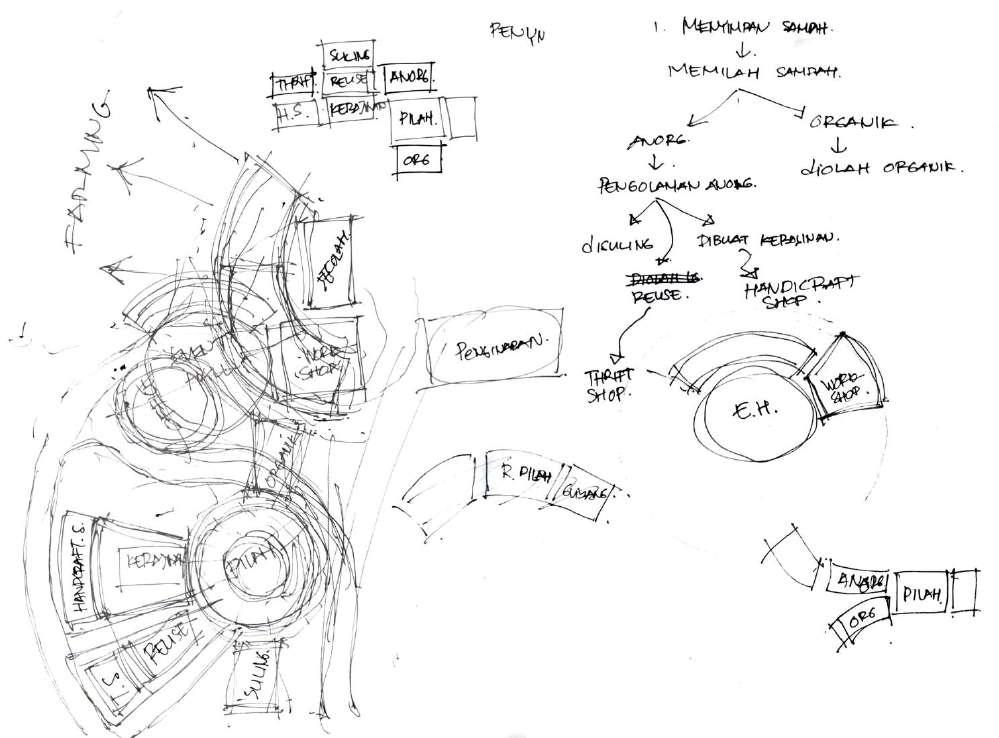 PENYN
1. MENYIMPAN SAMPAH.
MEMILAH SAMPAH.
ANORG.
ORGANIK.
PENGOLAHAN ANORG.
diOLAH ORGANIK.
diSULING
DIBUAT KERAJINAN.
REUSE.
HANDICRAFT
SHOP.
THRIFT
SHOP.
SULING
THRIFT
REUSE
ANORG.
H.S.
KERAJINAN
PILAH.
ORG
FARMING
WORK
SHOP
PENGINAPAN.
E.H.
WORK-
SHOP.
ORGANIK
R. PILAH
GUDANG
HANDCRAFT. S.
KERAJINAN
PILAH
REUSE
T.S.
SULING.
ANORG
PILAH.
ORG